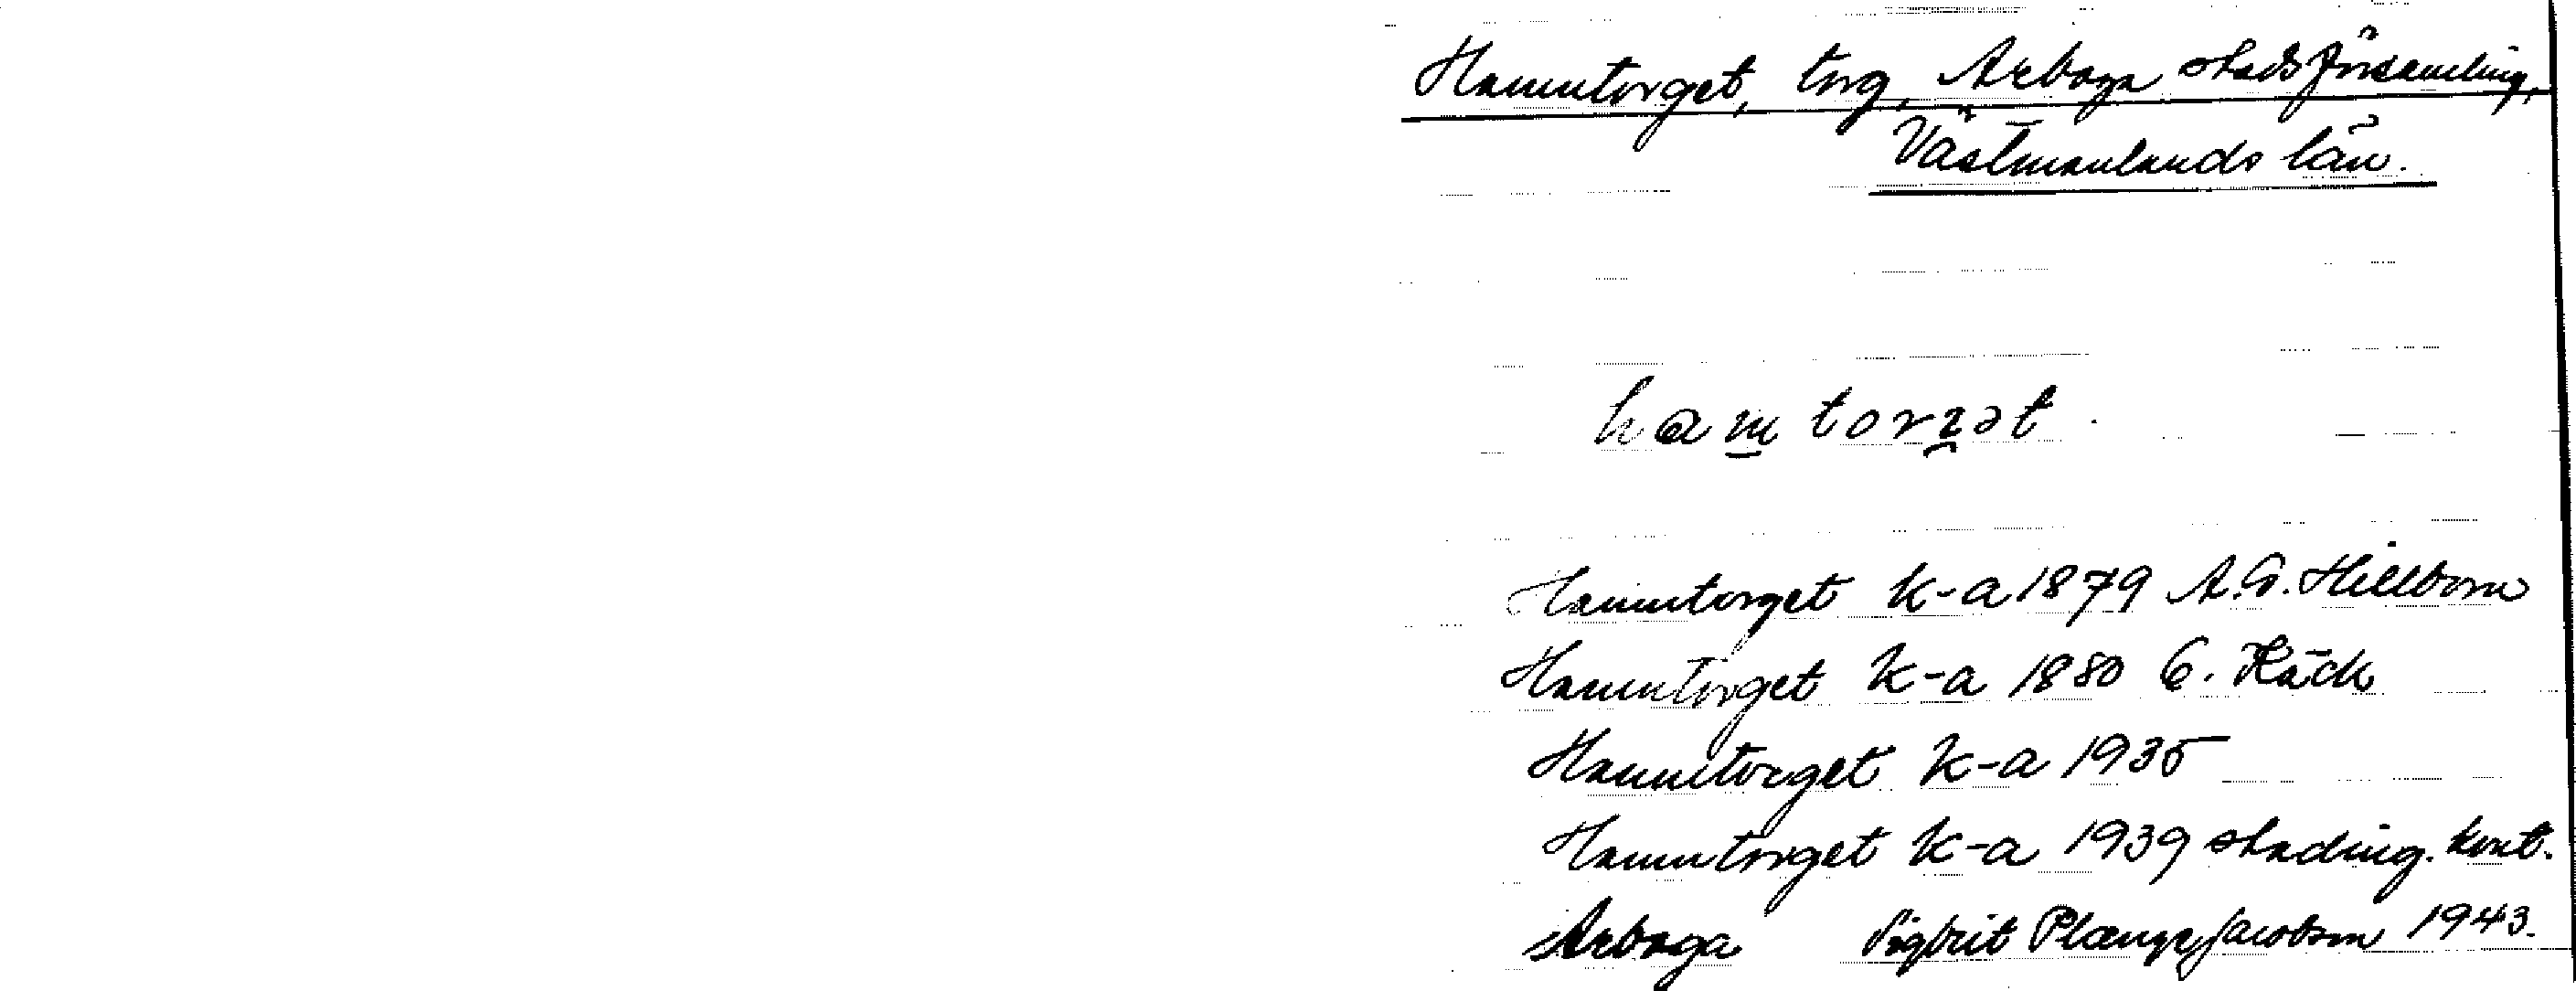 Hamntorget, torg, Arboga stadsförsamling,
Västmanlands län.
hamtorʒət.
Hamntorget k-a 1879 A.G. Hillbom
Hamntorget k-a 1880 C. Käck
Hamntorget k-a 1935
Hamntorget k-a 1939 stading. kont.
Arboga Sigbrit Plænge Jacobson 1943.